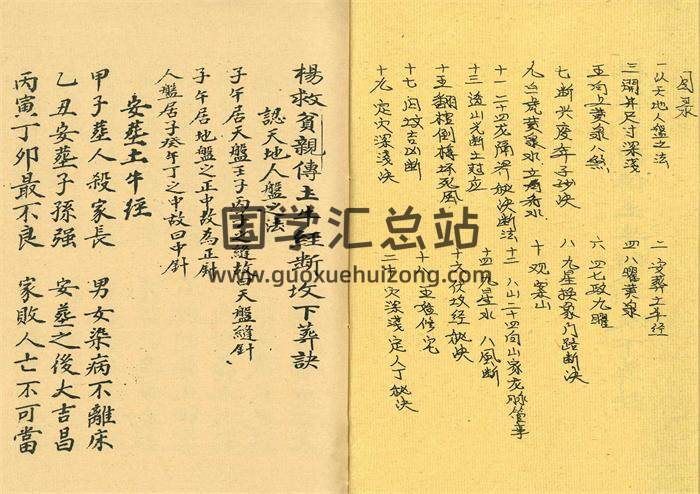 目录
一 以天地人盘之法 二 安葬土牛经
三 開井尺寸深浅 四 八曜黄泉
五 向上黄泉八煞 六 四七政九曜
七 断兴废年子妙决 八 九星 門路断决
九 黄泉水立局看水 十 观案山
十一 二十四龙隔界秘决断法 十二 八山二十四向山家龙脉管事
十三 透山光断立对应 十四 九星水 八風断
十五 翻棺倒椁坏死風 十六 伏坟经秘决
十七 阴坟吉凶断 修宅
十九 定灾深浅决 二十 定灾深浅定人丁秘决
楊救貧親傳土牛经断坟下葬訣
認天地人盤之法
子午居天盤壬子丙午之縫故曰天盤縫針
子午居地盤之正中故為正針
人盤居子癸午丁之中故曰中針
安葬土牛经
甲子葬人殺家長 男女染病不離床
乙丑安葬子孫強 安葬之後大吉昌
丙寅丁卯最不良 家敗人亡不可當
国学汇总站
www.guoxuehuizong.com